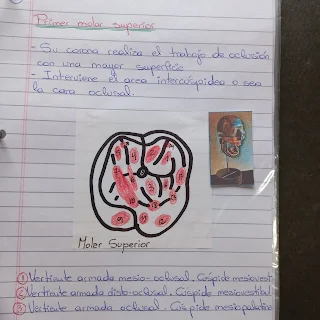 Primer molar superior
- Su corona realiza el trabajo de oclusión
con una mayor superficie
- Interviene el area intercuspidea o sea
la cara oclusal.
Molar Superior
① Vertiente armada mesio-oclusal. Cúspide mesiovest
② Vertiente armada disto-oclusal. Cúspide mesiovestibul
③ Vertiente armada oclusal. Cúspide mesiopalatina